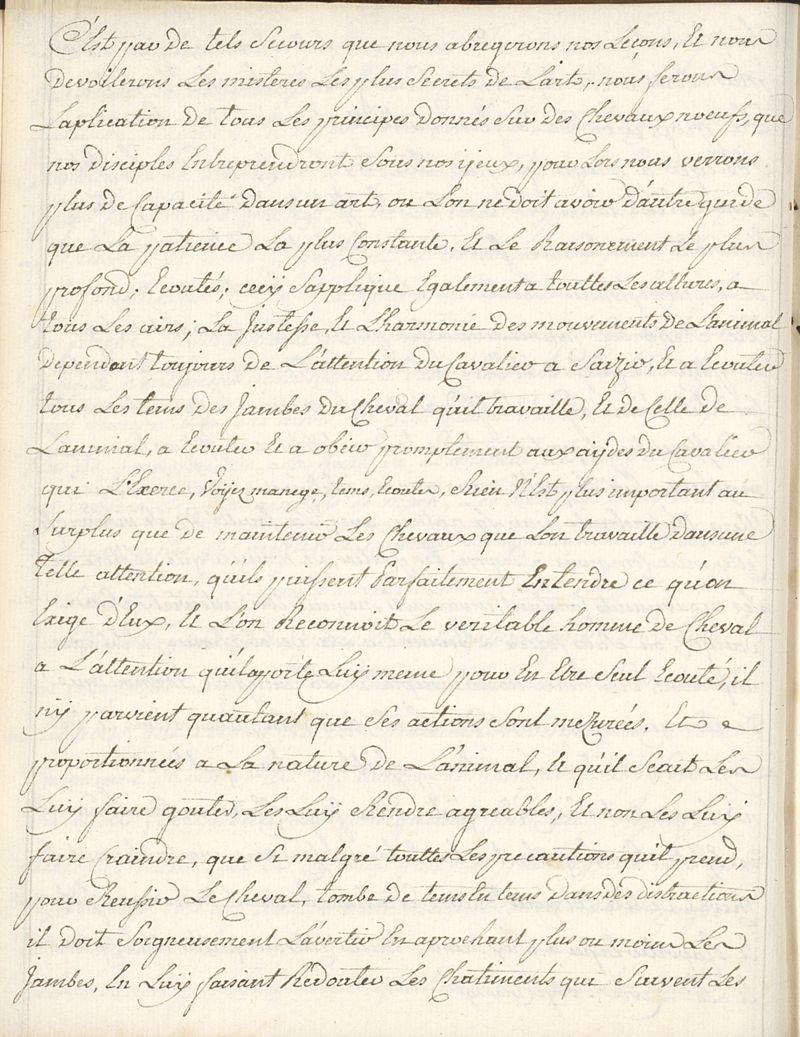 C'Est par de tels Secours que nous abregerons nos Leçons, Et nous
Devoilerons Les misteres Les plus Secrets de L'art, nous ferons
L'aplication de tous Les principes donnés Sur des Chevaux neufs, que
nos disciples Entreprendront Sous nos ijeux, pour Lors nous verrons
plus de Capacité Dans un art, ou L'on ne doit avoir d'autre guide
que La patience La plus Constante, Et Le Raisonement Le plus
profond; Ecoutés; cecy S'applique Egalement a touttes Les allures, a
tous Les airs; La Justesse, Et L'harmonie des mouvements de L'animal
dependant toujours de L'attention du Cavalier a Saizir, Et a Ecouter
tous Les tems des Jambes du Cheval qu'il travaille, Et de Celle de
L'animal, a Ecouter Et a obeir promptement aux aydes du Cavalier
qui L'Exerce, Voyez manege, tems, Ecouter, Rien N'Est plus important au
Surplus que de maintenir Les Chevaux que Lon travaille dans une
telle attention, qu'ils puissent Parfaitement Entendre ce qu'on
Exige d'Eux, Et L'on Reconnoit Le veritable homme de Cheval
a L'attention qu'il aporte Luy meme pour En Etre Seul Ecouté, il
n'y parvient qu'autant que Ses actions Sont mezurées, Et
proportionnées a La nature de L'animal, Et qu'il Scait Les
Luy faire gouter, Les Luy Rendre agreables, Et non Les Luy
faire Craindre, que Si malgré touttes Les precautions qu'il prend,
pour Reussir Le Cheval, tombe de tems En tems Dans des distractions
il doit Soigneusement L'avertir En aprochant plus ou moins Les
Jambes, En Luy faisant Redouter Les Chatiments qui Suivent Les